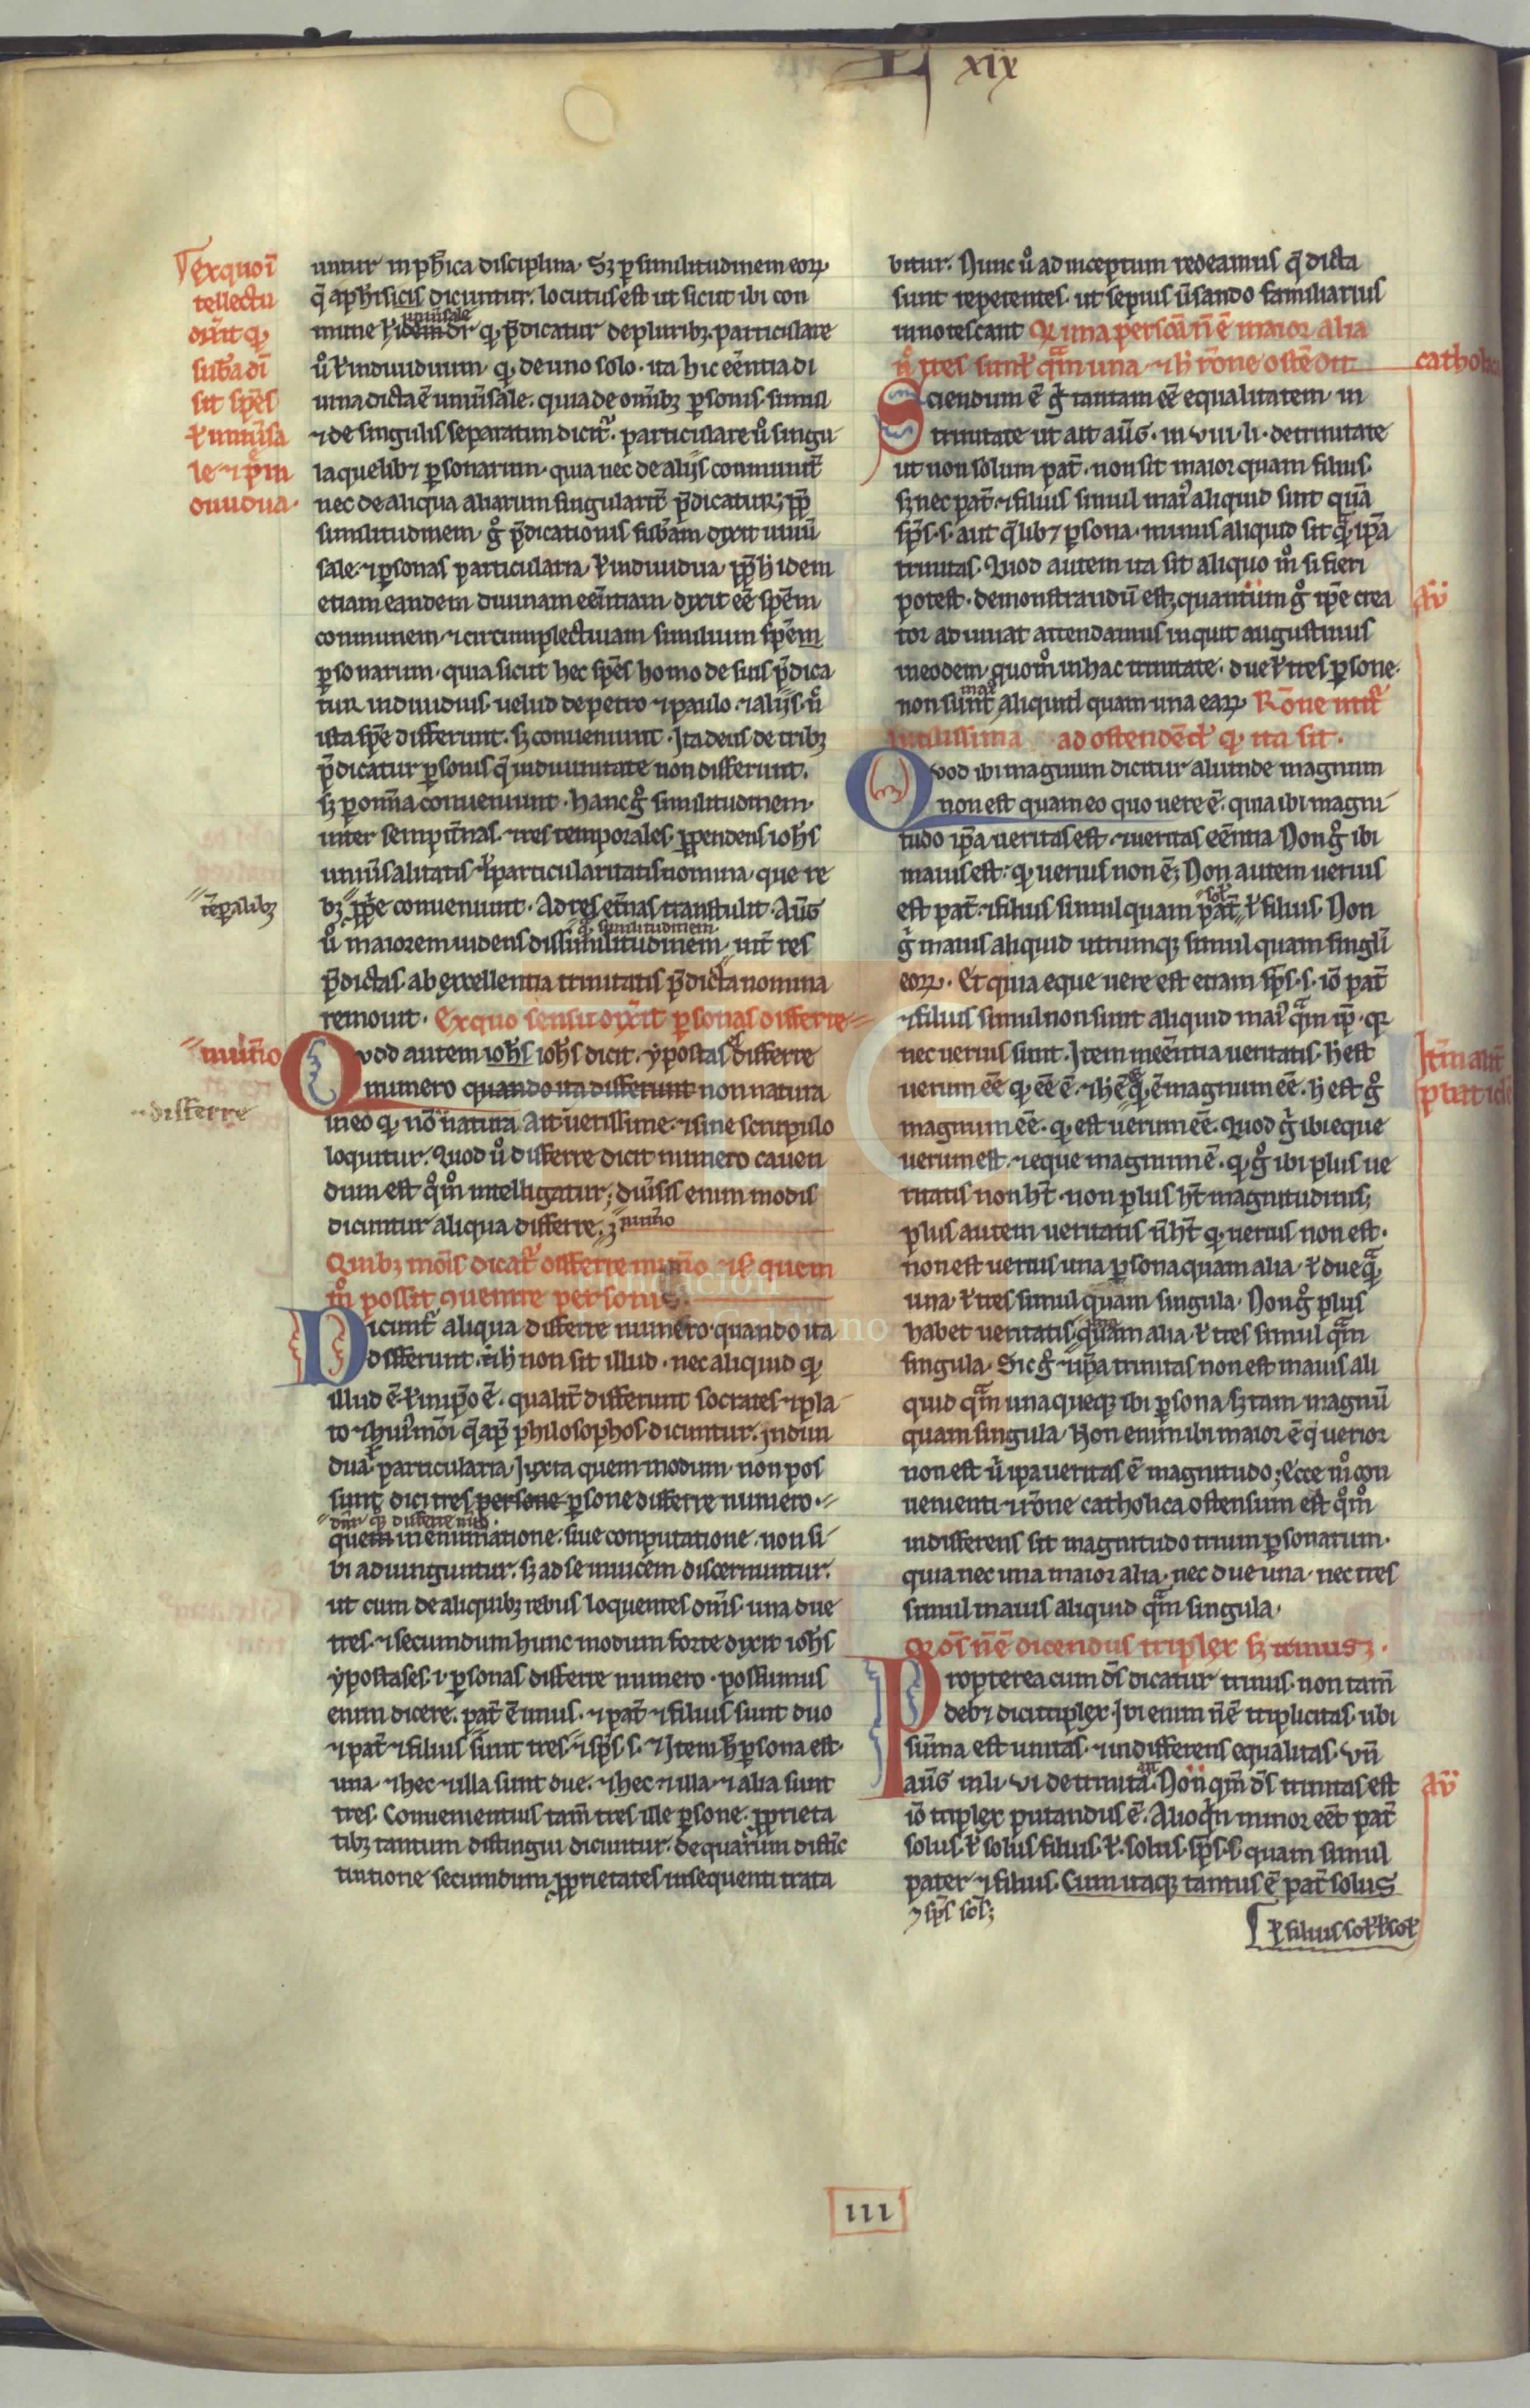 L xix
untur in ph̄ica disciplina. Sꝫ ꝑ similitudinem eoꝝ
q̄ a ph̄isicis dicuntur. locutus est ut sicut ibi con
mune ł idem dr̄ qđ p̄dicatur de pluribꝫ. particulare
uniuſale
ů ł indiuiduum. qđ de uno solo. ita hic eēntia di
uina dicta ē uniuſale. quia de om̄ibꝫ ꝑsonis simul
⁊ de singulis separatim dicit᷑. particulare ů singu
la quelibꝫ ꝑsonarum. quia nec de aliis conmunit̄
nec de aliqua aliarum singularit̄ p̄dicatur; ꝓpt̄
similitudinem g̊ p̄dicationis sub̄am dixit uniuſ
sale. ⁊ ꝑsonas particularia. ł indiuidua. ꝓpt̄ h̄ idem
etiam eandem diuinam eēntiam dixit eē spēm
conmunem ⁊ circumplectiuam similium spēm
ꝑsonarum. quia sicut hec spēs homo de suis p̄dica
tur indiuiduis. uelud de petro ⁊ paulo. ⁊ aliis. n̄
ista spē differunt. sꝫ conueniunt. Ita deus de tribꝫ
p̄dicatur ꝑsonis q̄ in diuinitate non differunt.
sꝫ ꝑ omn̄ia conueniunt. hanc g̊ similitudinem
inter sempit̄nas. ⁊ res temporales. ꝑpendens ioh̄s
uniuſalitatis ⁊ particularitatis nomina. que re
bꝫ ꝓp̄e conueniunt. Ad res et̄nas transtulit. Aūḡ
ů maiorem uidens dissimilitudinem
q̄ similitudinem
int̄ res
p̄dictas. ab excellentia trinitatis p̄dicta nomina
remouit. Ex quo sensu dixit ꝑsonas differre
Quod autem ioh̄s ioh̄s dicit. ypostas differre
numero quando ita differunt non natura
in eo qđ nō natura Ait uerissime. ⁊ sine scrupulo
loquitur. Quod ů differre dicit numero cauen
dum est qm̊ intelligatur; diuſis enim modis
dicuntur aliqua differre. num̄o
Quibꝫ mōis dicat᷑ differre num̄o ⁊ sc̄d quem
m̄ possit ꝯuenire personis.
Dicunt᷑ aliqua differre numero. quando ita
differunt. ut h̄ non sit illud. nec aliquid qđ
illud ē ł in ip̄o ē. qualit̄ differunt socrates ⁊ pla
to ⁊ hui᷒mōi q̄ ap̄ philosophos dicuntur. indiui
dua ł particularia. Iuxta quem modum. non pos
sunt dici tres persone ꝑsone differre numero.
quem in enumeratione. siue conputatione. non si
bi adiunguntur. sꝫ ad se inuicem discernuntur.
ut cum de aliquibꝫ rebus loquentes dicim̄. una due
tres. ⁊ secundum hunc modum forte dixit ioh̄s
ypostases. i. ꝑsonas differre numero. possumus
enim dicere. pat̄ ē unus. ⁊ pat̄ ⁊ filius sunt duo
⁊ pat̄ ⁊ filius sunt tres. ⁊ sp̄s. s. ⁊ Item h̄ ꝑsona est
una. ⁊ hec ⁊ illa sunt due. ⁊ hec ⁊ illa ⁊ alia sunt
tres. Conuenientius tam̄ tres ille ꝑsone. ꝓprieta
tibꝫ tantum distingui dicuntur. de quarum distīc
tintione secundum ꝓprietates insequenti tracta
ex quo ī
tellectu
dixit qđ
sub̄a di
sit spēs
ł uniuſa
le. ⁊ p̄ in
diuidua.
tēp̄alibꝫ
num̄o
differre
bitur. Nunc ů ad inceptum redeamus q̄ dicta
sunt repetentes. ut sepius ūsando familiarius
innotescant Qđ una persona n̄ ē maior alia
n̊ tres sunt quam una. ⁊ h̄ rōne ostēdit
Sciendum ē g̊ tantam eē equalitatem in
trinitate ut ait aūḡ. in viii. li. de trinitate
ut non solum pat̄. non sit maior quam filius.
sꝫ nec pat̄. ⁊ filius simul mai᷒ aliquid sint quā
sp̄s. s. aut q̄libꝫ ꝑsona. minus aliquid sit q̄ ip̄a
trinitas. Quod autem ita sit aliquo m̊ si fieri
potest. demonstrandū est; quantum g̊ ip̄e crea
tor adiuuat attendamus inquit augustinus
in eodem. quom̊ in hac trinitate. due ł tres ꝑsone.
non sunt mai᷒ aliquid quam una eaꝝ Rōne utit᷑
subtilissima ad ostendēd᷑ qđ ita sit.
Quod ibi magnum dicitur aliunde magnum
non est quam eo quo uere ē. quia ibi magni
tudo ip̄a ueritas est. ⁊ ueritas eēntia Non g̊ ibi
maius est. qđ uerius non ē; Non autem uerius
est pat̄. ⁊ filius simul quam pat̄ sol᷒ ł filius. Non
g̊ maius aliquid utrumqꝫ simul quam singl̄i
eoꝝ. Et quia eque uere est etiam sp̄s. s. iō pat̄
⁊ filius simul non sunt aliquid mai᷒ qm̄ ip̄e. qꝛ
nec uerius sunt. Item in eēntia ueritatis. h̄ est
uerum eē qđ eē ē. ⁊ h̄ ē eē qđ ē magnum eē. h̄ est g̊
magnum eē. qđ est uerum eē. Quod g̊ ibi eque
uerum est. ⁊ eque magnum ē. qđ g̊ ibi plus ue
ritatis non ht̄. non plus ht̄ magnitudinis;
plus autem ueritatis n̄ ht̄ qđ uerius non est.
non est uerius una ꝑsona quam alia. ł due q̄
una. ł tres simul quam singula. Non g̊ plus
habet ueritatis. quam alia. ł tres simul qm̄
singula. Sic g̊ ⁊ ip̄a trinitas non est maius ali
quid qm̄ una queqꝫ ibi ꝑsona. sꝫ tam magnū
quam singula. Non enim ibi maior ē q̄ uerior
non est ů ipa ueritas ē magnitudo; Ecce m̊ con
uenienti ⁊ rōne catholica ostensum est qm̊
indifferens sit magnitudo trium ꝑsonarum.
quia nec una maior alia. nec due una. nec tres
simul maius aliquid qm̄ singula.
Qđ dō n̄ ē dicendus triplex sꝫ trinus.
Propterea cum dō dicatur trinus. non tam̄
debꝫ dici triplex. Ibi enim n̄ ē triplicitas. ubi
sum̄a est unitas. ⁊ indifferens equalitas. Vn̄
aūḡ in li. vi de trinitā ait. Non qm̄ d̄s trinitas est
iō triplex putandus ē. Alioq̄n minor eēt pat̄
solus. ł solus filius. ł. solus. sp̄s. s. quam simul
pater ⁊ filius. Cum itaqꝫ tantus ē pat̄ solus
ł filius sol᷒ ł sol᷒
⁊ sp̄s sol᷒;
catholica
Aū
Aū
III